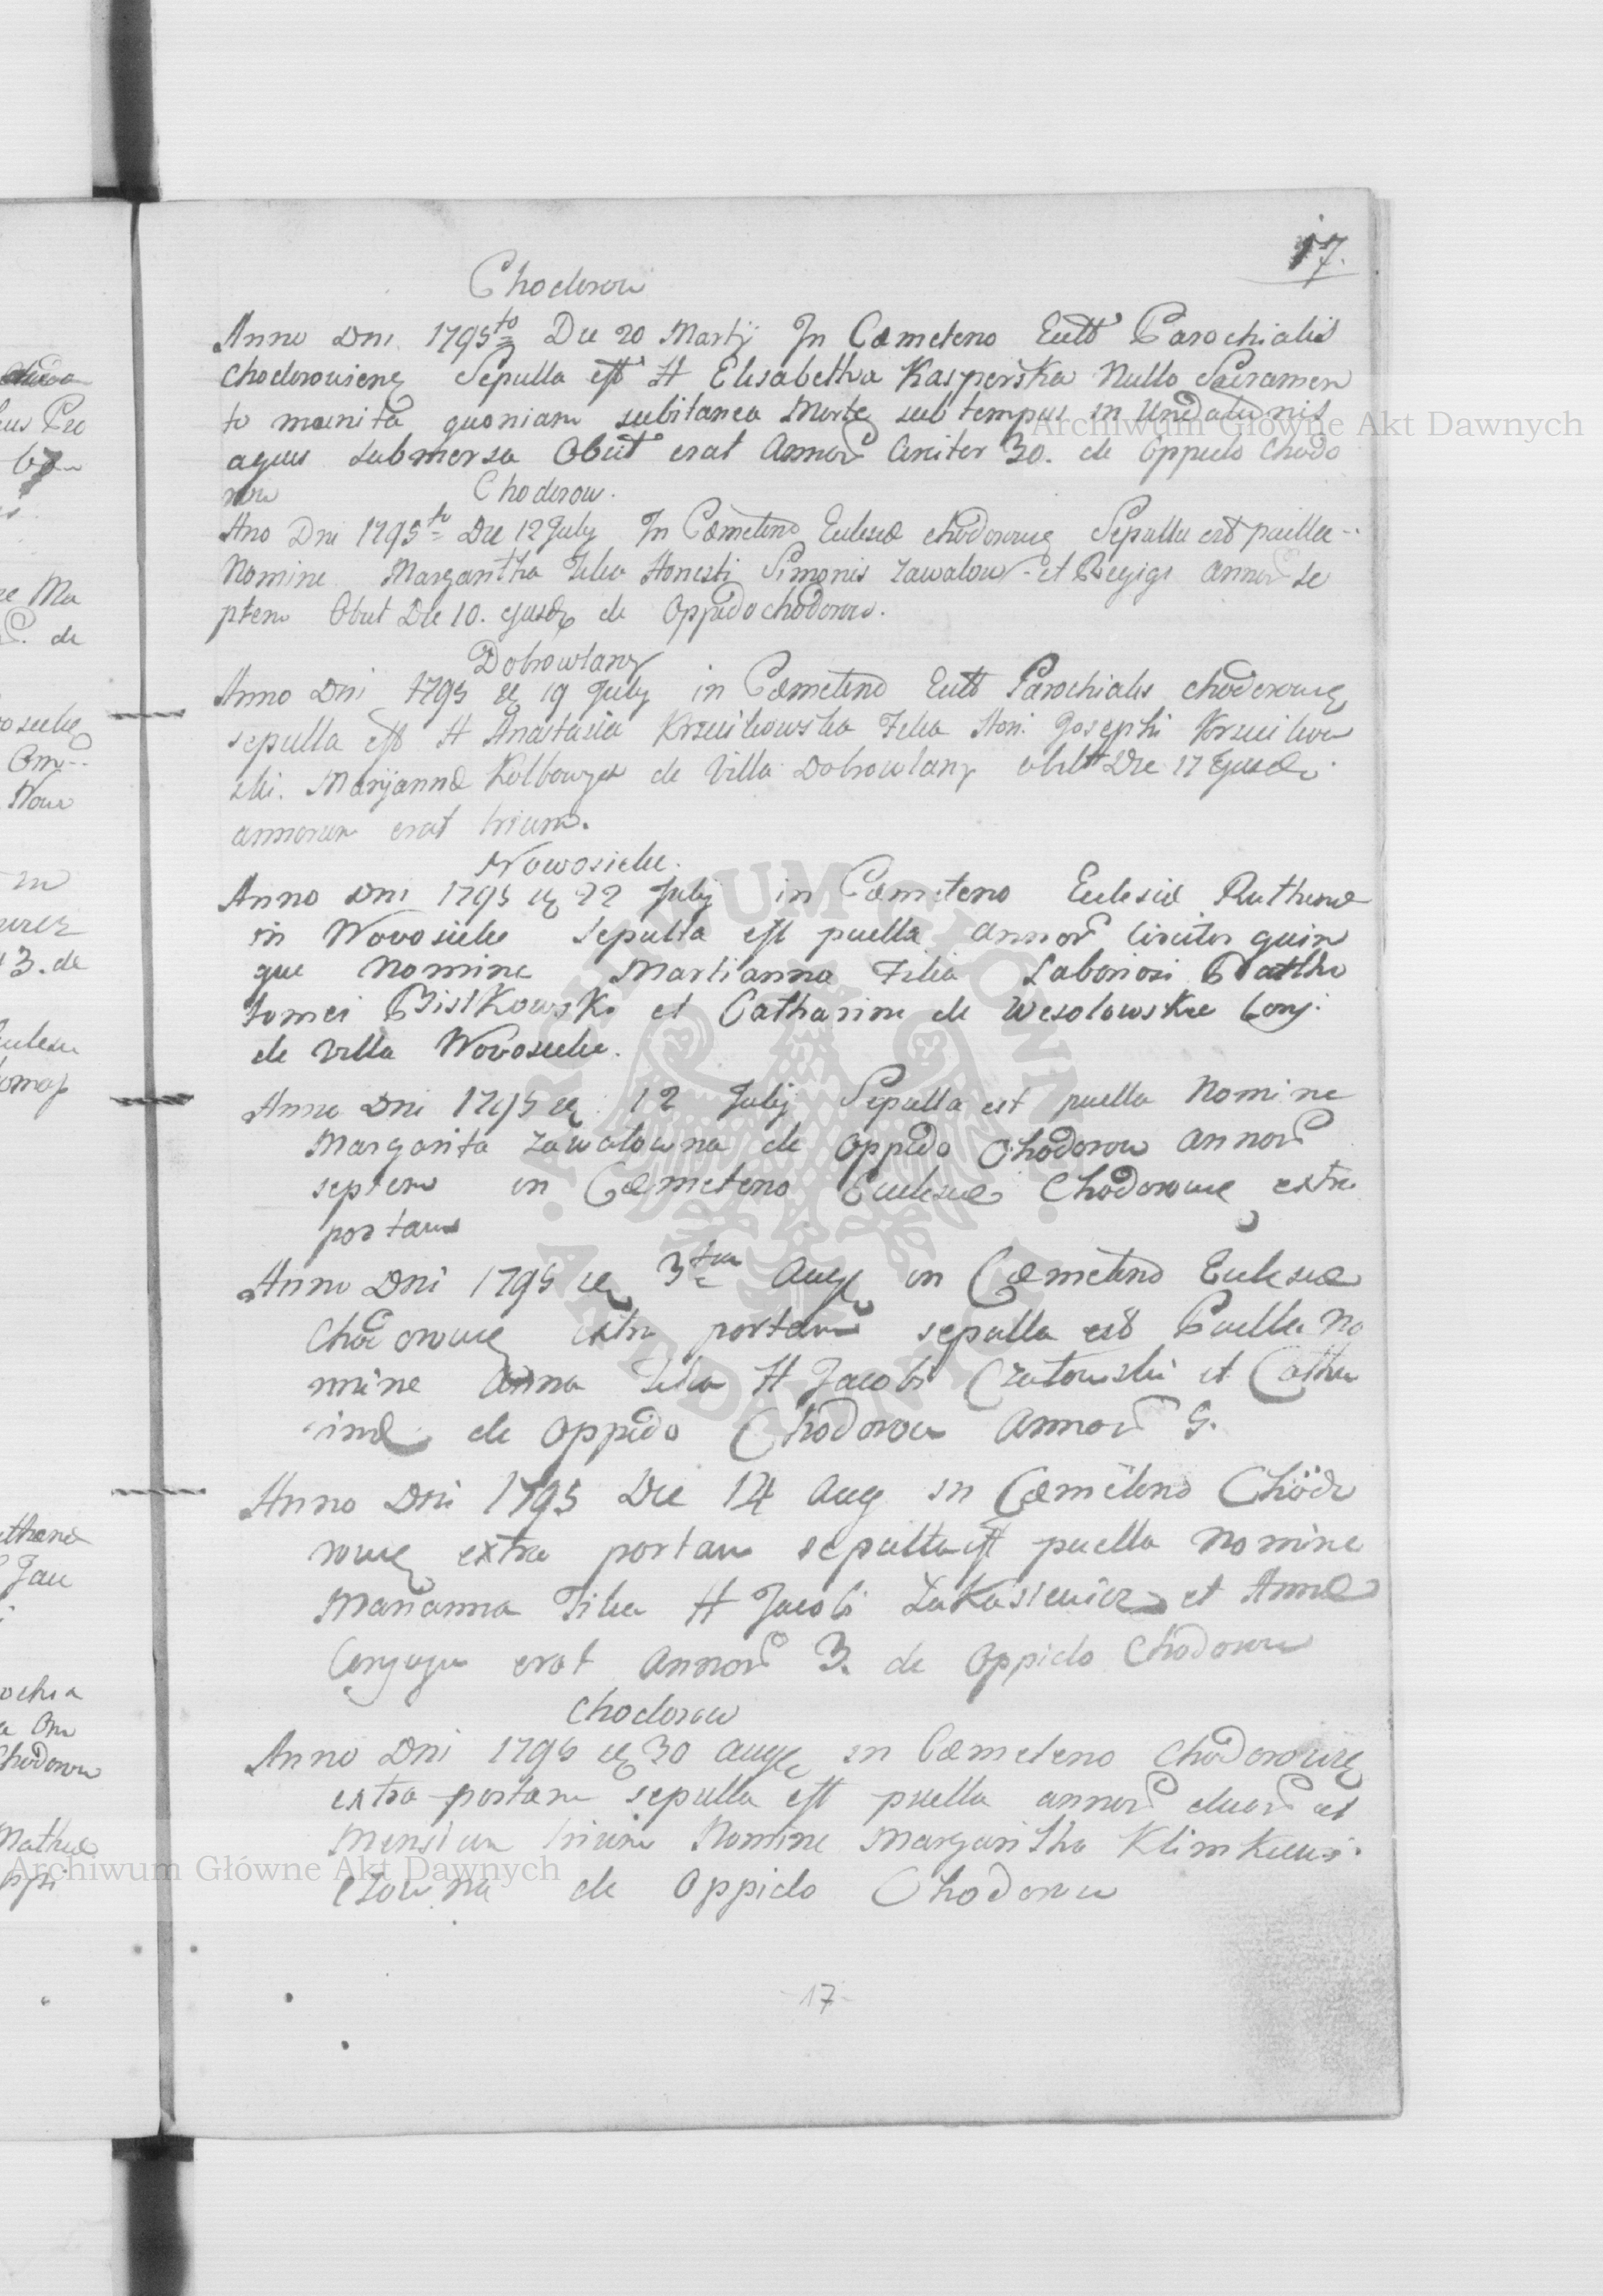 17.
Chodorow
Anno Dni 1795to Die 20 Martij In Cæmeterio Eccl Parochialis
Chodorowieng Sepulta est H Elisabetha Kasperska Nullo Sacramen
to munita quoniam subitanea Morte sub tempus in Undationis
aquis submersa Obiit erat Annor Circiter 30. de Oppido Chodo
row
Chodorow.
Ano Dni 1795to Die 12 July In Cæmeterio Eclesiæ Chodorowieng Sepulta est puella
Nomine Margaritha Filia Honesti Simonis Zawalow et Regige annor Se
ptem Obiit Die 10. ejusdq de Oppido Chodorow.
Dobrowlany
Anno Dni 1795 19 July in Cæmeterio Eccl Parochialis Chodorowieng
sepulta est H Anastasia Filia Hon. Josephi
Maryannæ de Villa Dobrowlany obiit Die 17 Ejusd
annorum erat trium.
Nowosielce.
Anno Dni 1795 22 Julij in Cæmeterio Eclesiæ Ruthenæ
in Novosielce Sepulta est puella annor Circiter quin
que Nomine Martianna Filia Laboriosi Bartho
lomei BistKowski et Catharine de Wesolowskie Conj.
de Villa Novosielce.
Anno Dni 1795 12 Julij Sepulta est puella Nomine
Margarita Zawalowna de Oppido Chodorow annor
septem in Cæmeterio Eclesiæ Chodorowie extra
portam
Anno Dni 1795 3tia Aug in Cæmeterio Eclesiæ
Chodorowie extra portam sepulta est Puella No
mine Anna Filia H Jacobi et Catha
rinæ de Oppido Chodorow Annor 5.
Anno Dni 1795 Die 14 Aug in Cæmiterio Chodo
rowie extra portam sepulta est puella Nomine
Marianna Filia H Jacobi ŁuKasiewicz et Annæ
Conjugu erat Annor 3. de Oppido Chodorow
Chodorow
Anno Dni 1795 30 Aug in Cæmeterio Chodorowie
extra portam sepulta est puella annor duor et
Mensium trium Nomine Margaritha Klimkiewi
czowna de Oppido Chodorow
17
Archiwum Główne Akt Dawnych
Archiwum Główne Akt Dawnych
ARCHIWUM GŁÓWNE AKT DAWNYCH